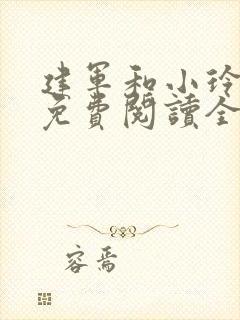 建軍和小玲
免費閱讀全
容焉